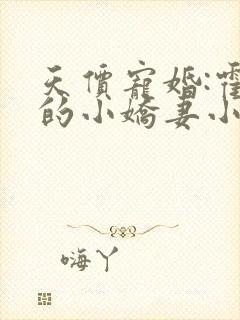 天價寵婚:霍
的小嬌妻小
嗨丫